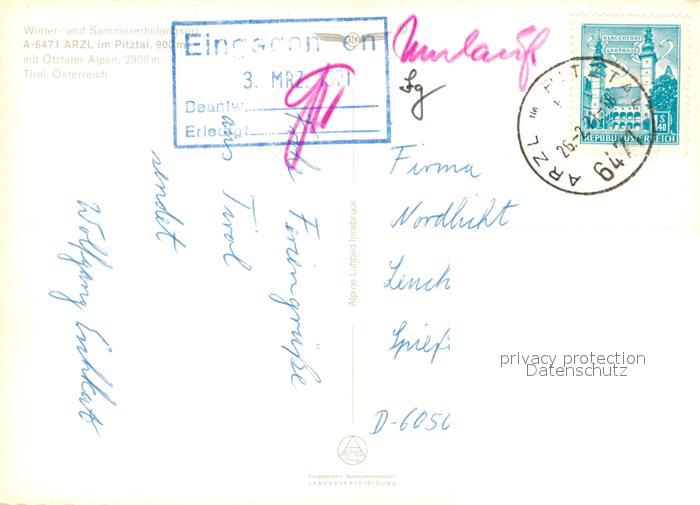 Winter- und Sommererholungsort
A-6471 ARZL im Pitztal, 900 m
mit Ötztaler Alpen, 2900 m.
Tirol, Österreich
Eingegangen
3. MRZ.
Beantw.
Erledigt
Umlauf
KLAGENFURT
LANDHAUS
S 1.40
REPUBLIK ÖSTERREICH
ARZL IM PITZTAL
6471
Feriengrüße
aus Tirol
sendet
Wolfgang
Alpine Luftbild Innsbruck
Firma
Nordlicht
D-6050
privacy protection
Datenschutz
Freigegeben v. Bundesministerium f.
LANDESVERTEIDIGUNG